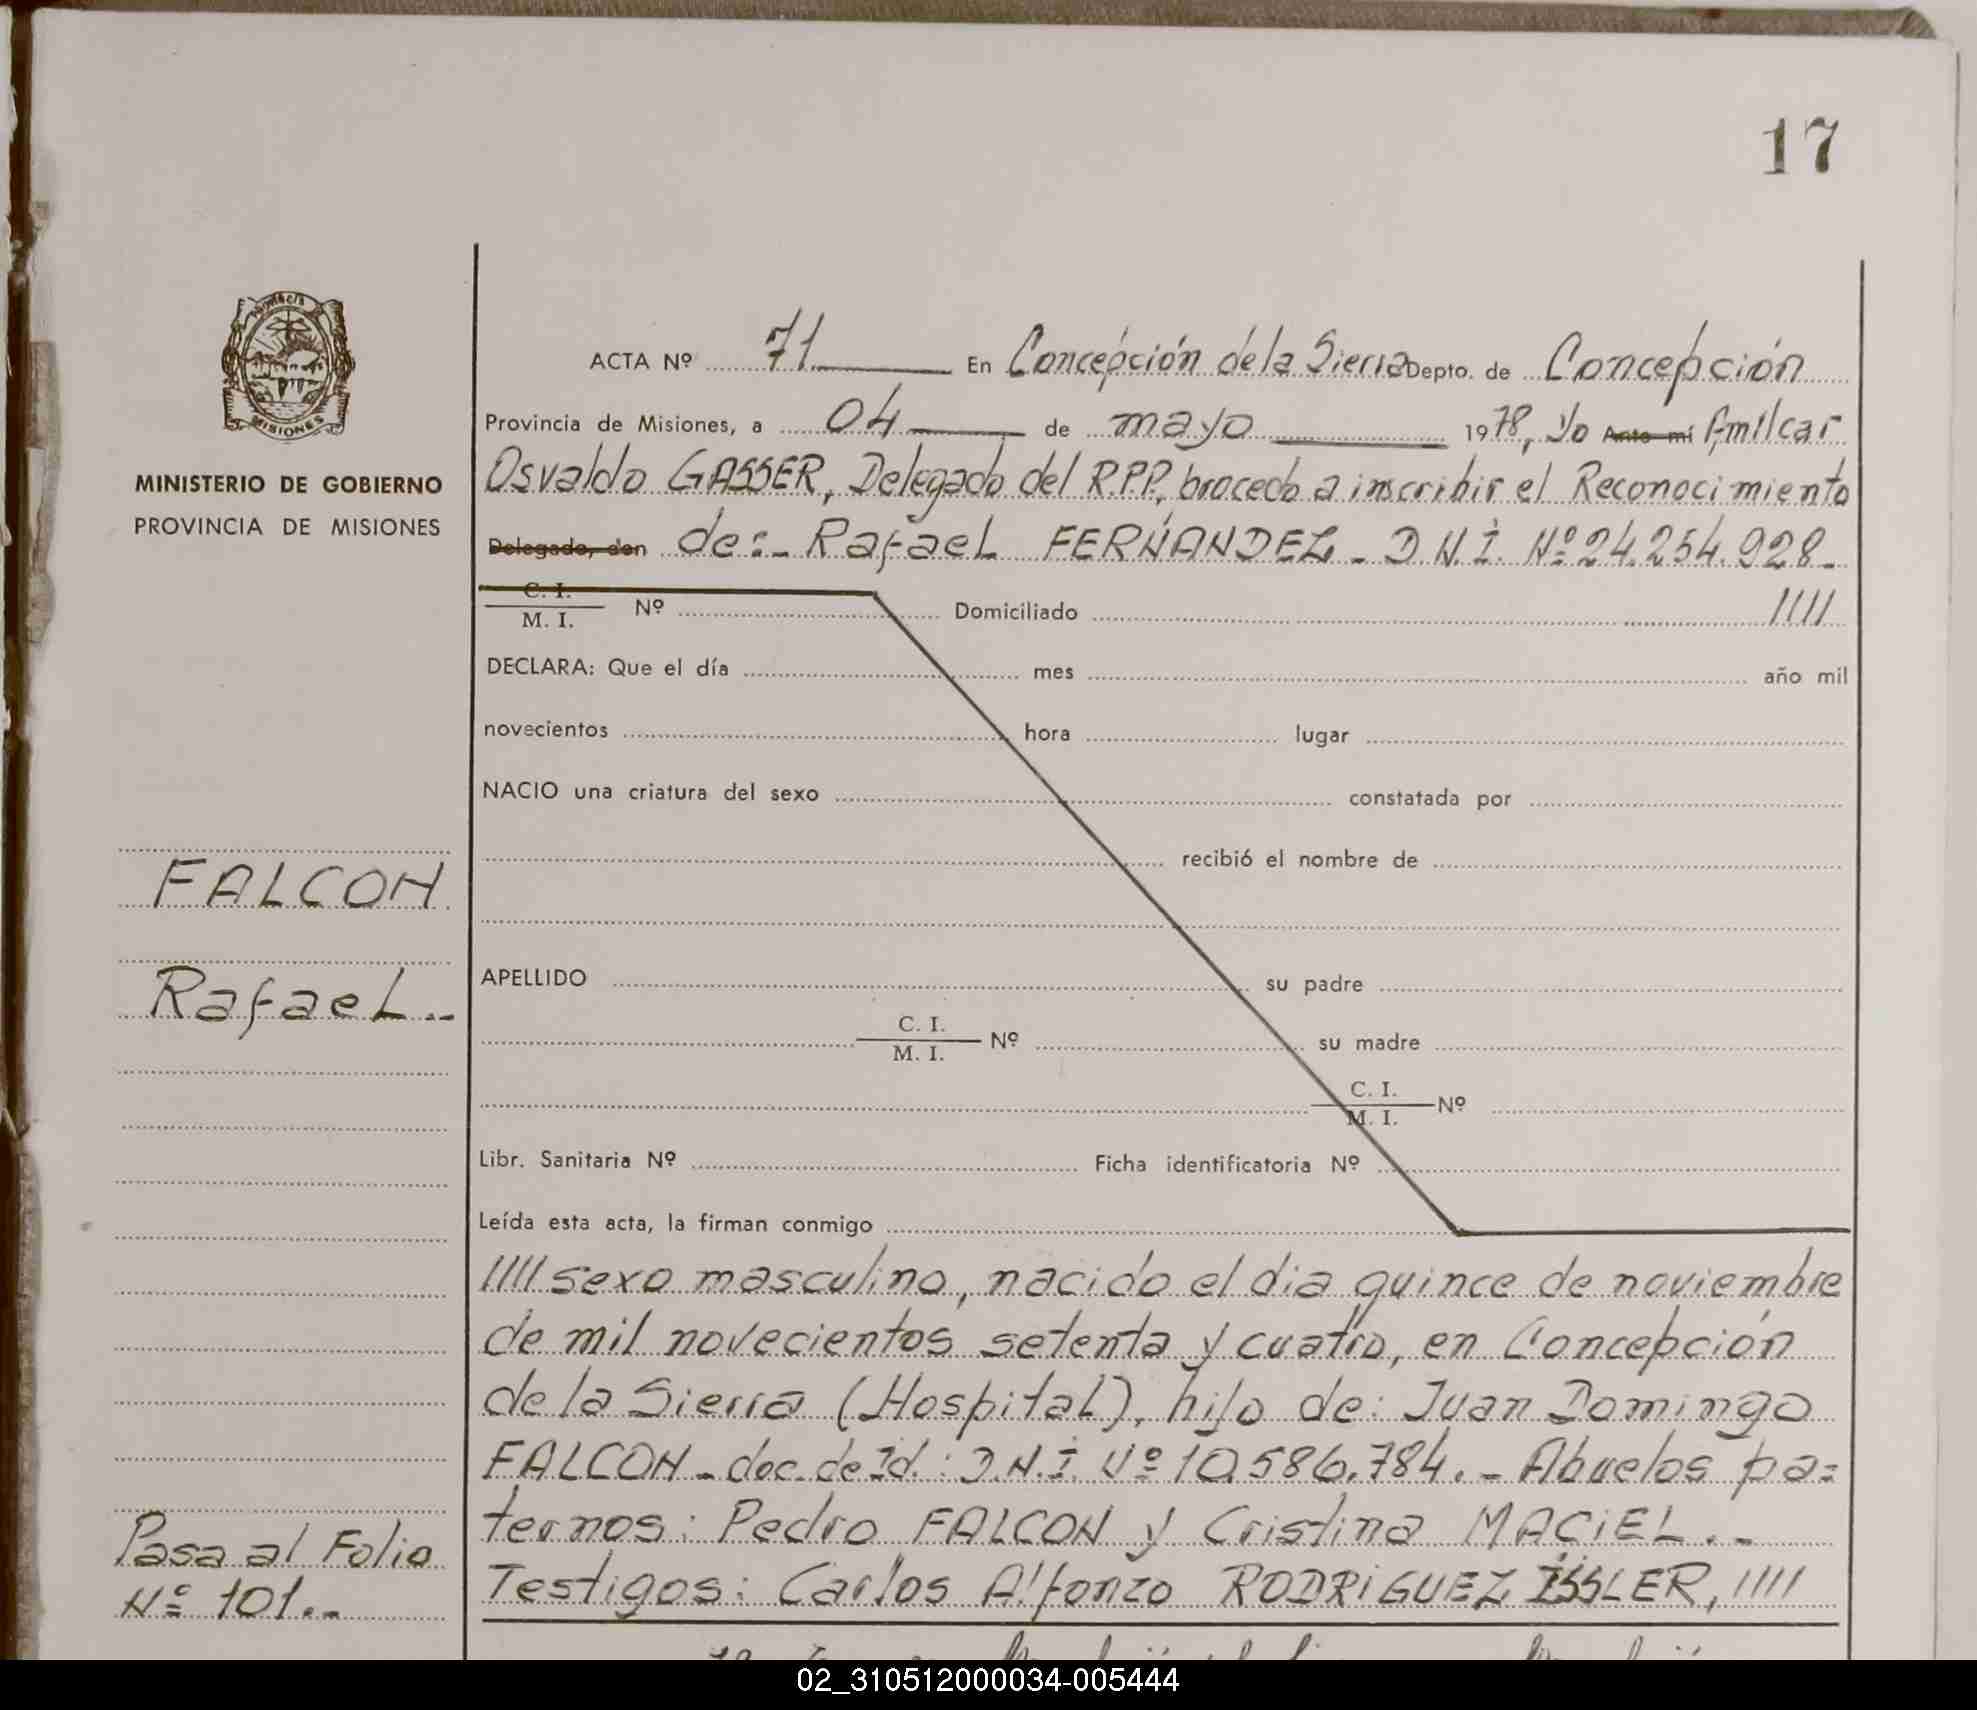 17
MISIONES
MINISTERIO DE GOBIERNO
PROVINCIA DE MISIONES
ACTA Nº 71 En Concepción de la Sierra Depto. de Concepción
Provincia de Misiones, a 04 de mayo 1978, Yo Ante mí Amilcar
Osvaldo GASSER, Delegado del R.P.P., procedo a inscribir el Reconocimiento
Delegado, don de:- Rafael FERNÁNDEZ - D.N.I. Nº 24.254.928-
C. I.
M. I. Nº Domiciliado ////
DECLARA: Que el día mes año mil
novecientos hora lugar
NACIO una criatura del sexo constatada por
recibió el nombre de
FALCON
Rafael.-
APELLIDO su padre
C. I.
M. I. Nº su madre
C. I.
M. I. Nº
Libr. Sanitaria Nº Ficha identificatoria Nº
Leída esta acta, la firman conmigo
//// sexo masculino, nacido el dia quince de noviembre
de mil novecientos setenta y cuatro, en Concepción
de la Sierra (Hospital), hijo de: Juan Domingo
FALCON - doc. de Id.: D.N.I. Nº 10.586.784.- Abuelos pa=
ternos: Pedro FALCON y Cristina MACIEL.-
Testigos: Carlos Alfonzo RODRIGUEZ ISSLER, ////
Pasa al Folio
Nº 101.-
02_310512000034-005444